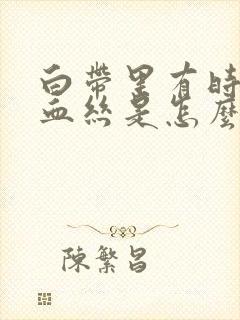 白帶里有時
血絲是怎麼
陳繁昌